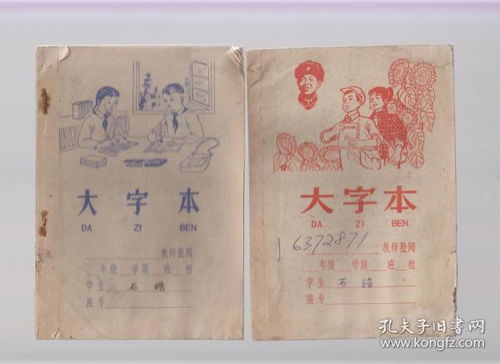 大字本
DA ZI BEN
教师批阅
年级 学期 班 组
学生 石皓
座号
大字本
DA ZI BEN
16372871
教师批阅
年级 学期 班 组
学生 石皓
座号
孔夫子旧书网
www.kongfz.com